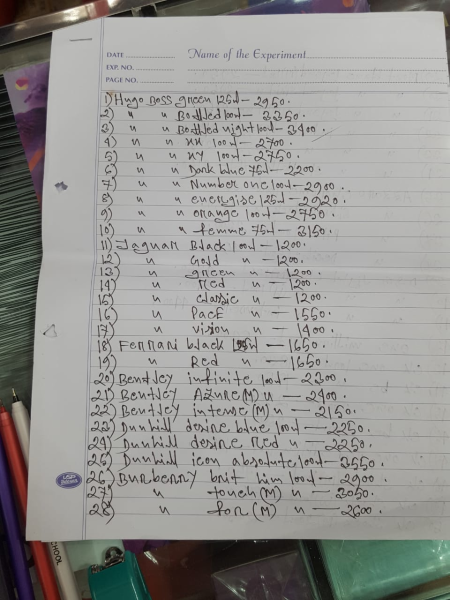 DATE
Name of the Experiment
EXP. NO.
PAGE NO.
1) Hugo Boss green 125ml - 2950.
2) " " Bottled 100ml - 3350
3) " " Bottled night 100ml - 3400
4) " " XX 100ml - 2700
5) " " XY 100ml - 2750
6) " " Dark blue 75ml - 2200
7) " " Number one 100ml - 2900.
8) " " energise 125ml - 2920
9) " " orange 100ml - 2750
10) " " femme 75ml - 3150
11) Jaguar Black 100ml - 1200
12) " Gold " - 1200.
13) " green " - 1200
14) " Red " - 1200
15) " classic " - 1200.
16) " Pace " - 1550
17) " vision " - 1400
18) Ferrari black 125ml - 1650.
19) " Red " - 1650
20) Bentley infinite 100ml - 2300.
21) Bentley Azure (M) " - 2400.
22) Bentley intense (M) " - 2150
23) Dunhill desire blue 100ml - 2250.
24) Dunhill desire Red " - 2250.
25) Dunhill icon absolute 100ml - 3550
26) Burberry brit him 100ml - 2900
27) " touch (M) " - 3050
28) " for (M) " - 2600
SCHOOL